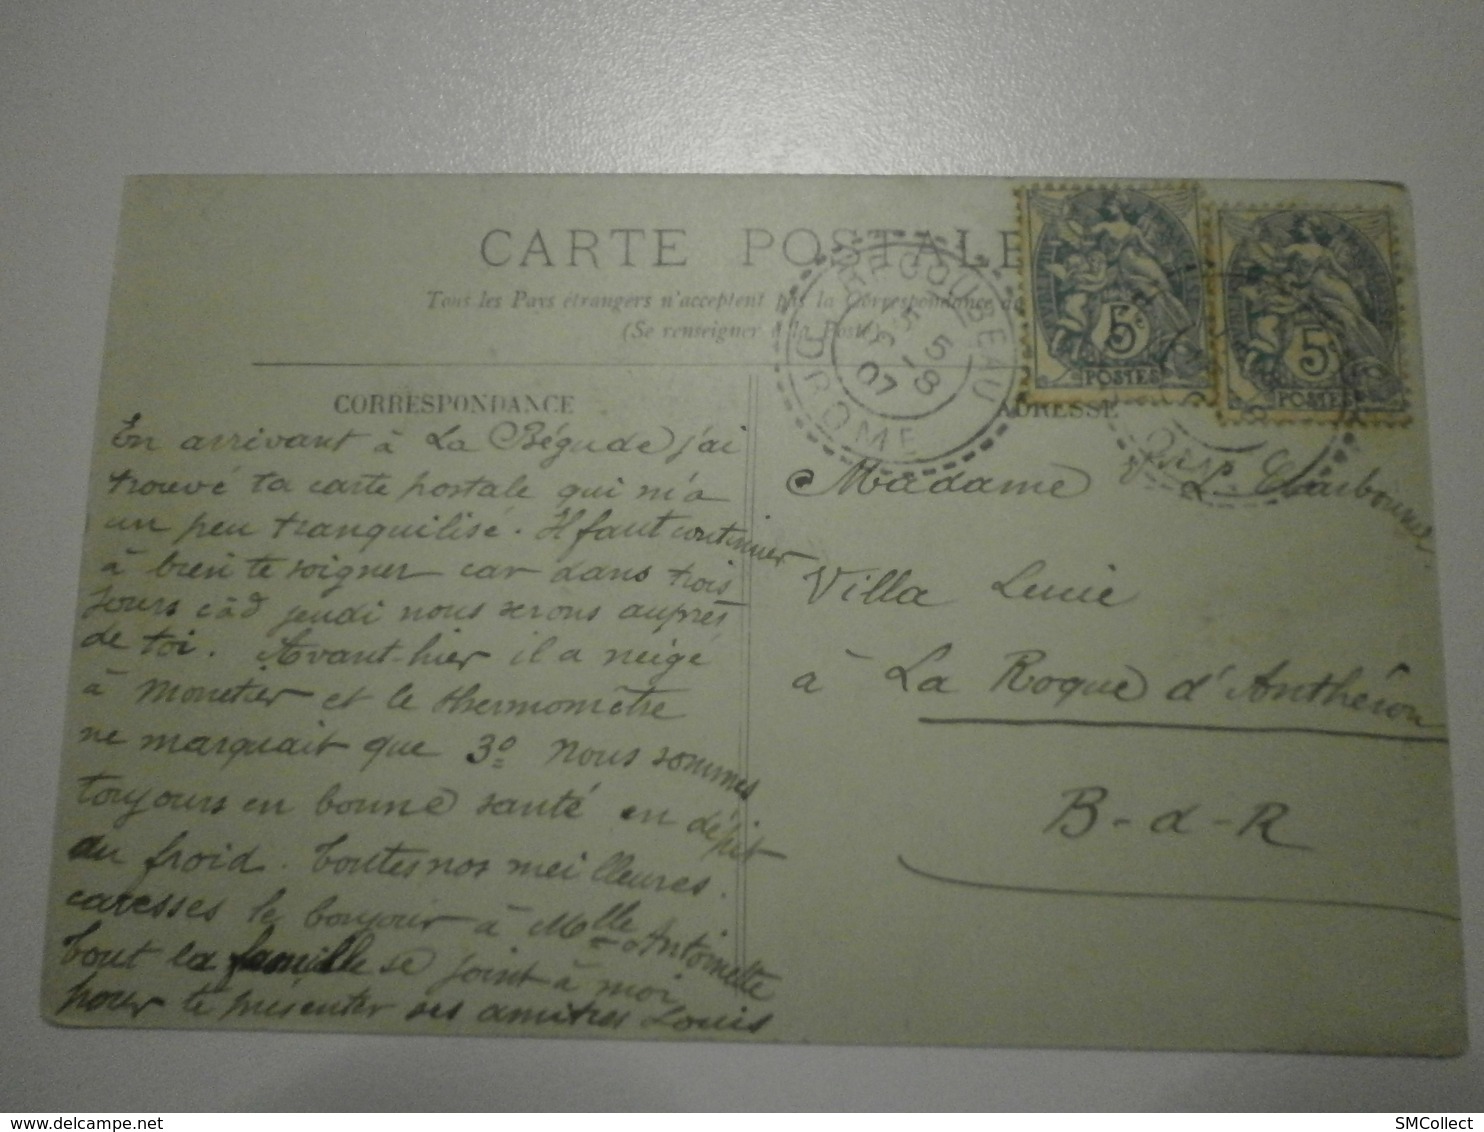 CARTE POSTALE
Tous les Pays étrangers n'acceptent pas la Correspondance au
(Se renseigner à la Poste)
RECOUBEAU
DROME
5 -8
07
5c
POSTES
5
POSTES
CORRESPONDANCE
ADRESSE
En arrivant à La Bégude j'ai
trouvé ta carte postale qui m'a
un peu tranquilisé. Il faut continuer
à bien te soigner car dans trois
jours càd jeudi nous serons auprès
de toi. Avant-hier il a neigé
à Monetier et le thermomètre
ne marquait que 3° Nous sommes
toujours en bonne santé en dépit
du froid. Toutes nos meilleures
caresses le bonjour à Melle Antoinette
Tout la famille se joint à moi
pour te présenter ses amitiés Louis
Madame L. Charbonnier
Villa Lucie
à La Roque d'Anthéron
B-d-R
SMCollect